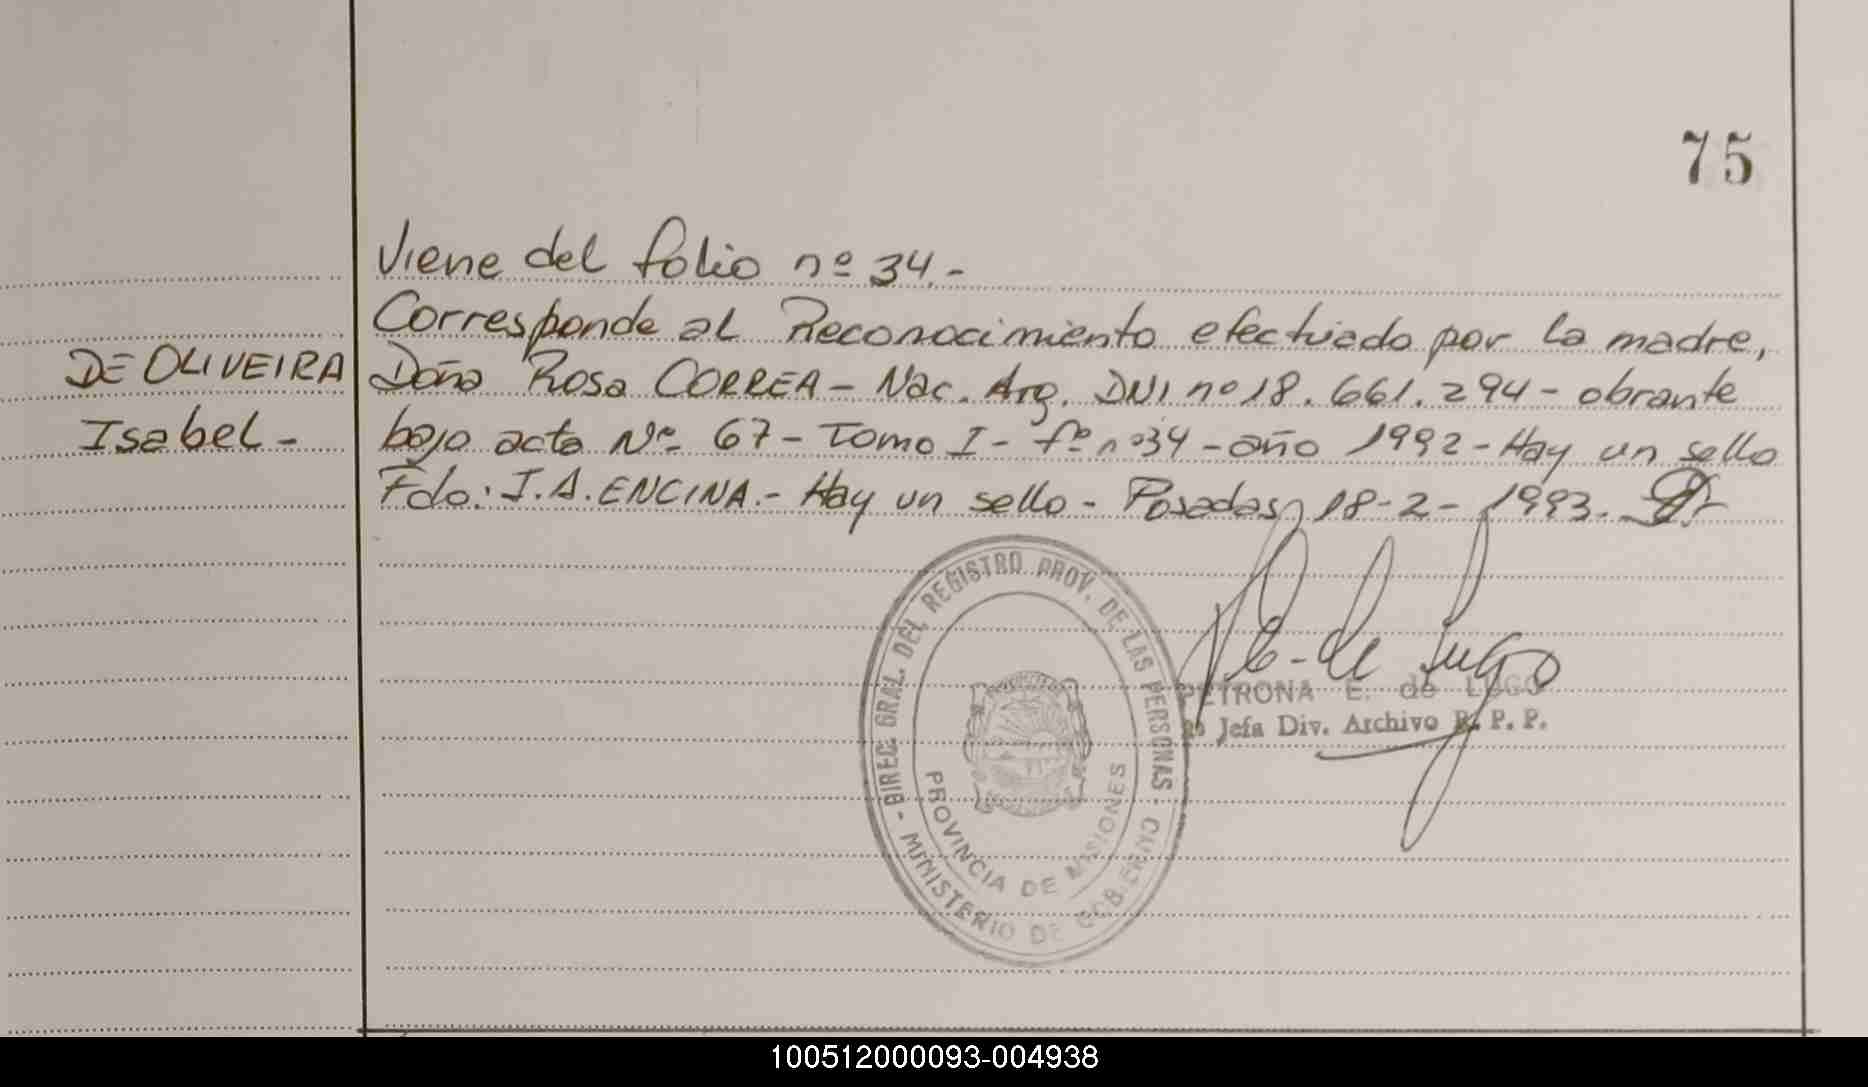 75
Viene del folio nº 34.-
Corresponde al Reconocimiento efectuado por la madre,
DE OLIVEIRA
Doña Rosa CORREA - Nac. Arg. DNI nº 18.661.294 - obrante
Isabel -
bajo acta Nº 67 - Tomo I - fº nº 34 - año 1992 - Hay un sello
Fdo: J.A. ENCINA.- Hay un sello - Posadas, 18-2-1993.
P E. de Lugo
PETRONA E. de LUGO
Jefa Div. Archivo R. P. P.
- DIREC. GRAL. DEL REGISTRO PROV. DE LAS PERSONAS -
MINISTERIO DE GOBIERNO
PROVINCIA DE MISIONES
100512000093-004938